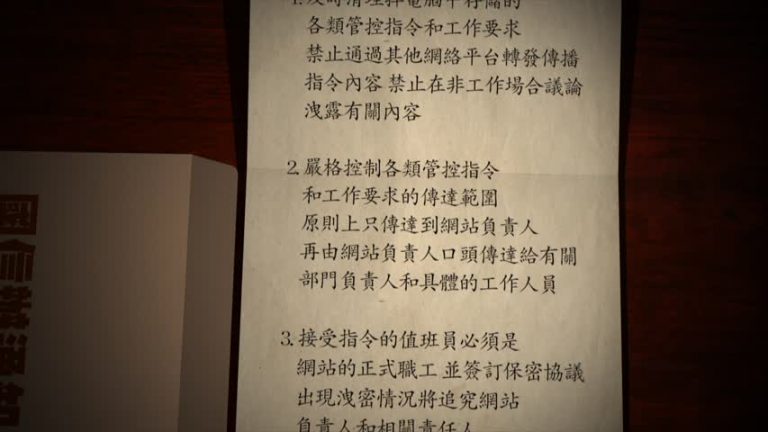 1.及時清理掉電腦中存儲的
各類管控指令和工作要求
禁止通過其他網絡平台轉發傳播
指令內容 禁止在非工作場合議論
洩露有關內容
2.嚴格控制各類管控指令
和工作要求的傳達範圍
原則上只傳達到網站負責人
再由網站負責人口頭傳達給有關
部門負責人和具體的工作人員
3.接受指令的值班員必須是
網站的正式職工 並簽訂保密協議
出現洩密情況將追究網站
負責人和相關責任人